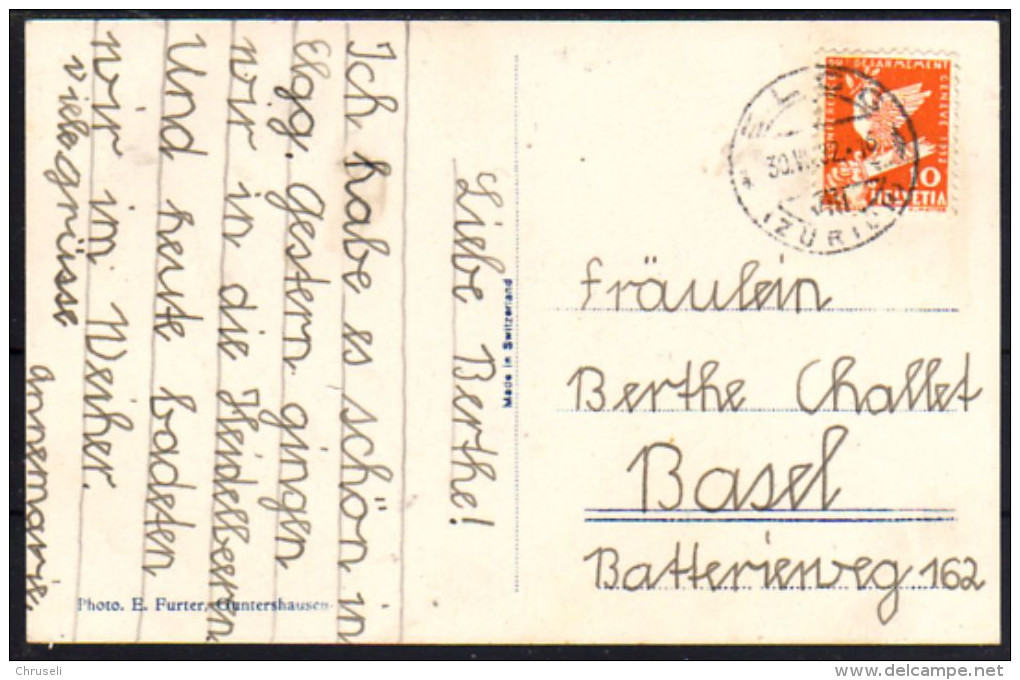 Liebe Berthe!
Ich habe es schön in
Elgg. Gestern gingen
wir in die Heidelbeeren
Und heute baden
wir im Weiher.
viele grüsse
Annemarie.
Photo. E. Furter, Guntershausen
Made in Switzerland
ELGG
30.VI.32.
(ZÜRICH)
CONFERENCE DU DESARMEMENT GENEVE 1932
10
HELVETIA
Fräulein
Berthe Challet
Basel
Batterieweg 162
Chruseli
www.delcampe.net